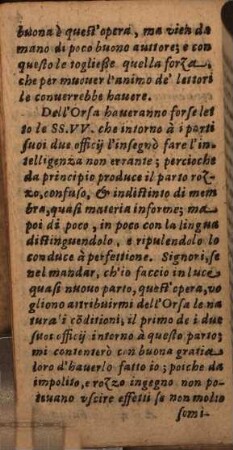 buona è quest'opera, ma vien da
mano di poco buono auttore; e con
questo le togliesse quella forza,
che per muover l'animo de' lettori
le conuerrebbe hauere.
Dell'Orsa haueranno forse let
to le SS.VV. che intorno à i parti
suoi due officij l'insegnò fare l'in
telligenza non errante; percioche
da principio produce il parto roz-
zo, confuso, & indistinto di mem
bra, quasi materia informe; ma
poi di poco, in poco con la lingua
distinguendolo, e ripulendolo lo
conduce à perfettione. Signori, se
nel mandar, ch'io faccio in luce
quasi nuouo parto, quest'opera, vo
gliono attribuirmi dell'Orsa le na
tura'i cōditioni, il primo de i due
suoi officij intorno à questo parto;
mi contenterò con buona gratia
loro d'hauerlo fatto io; poiche da
impolito, e rozzo ingegno non po-
teuano vscire effetti se non molto
somi-